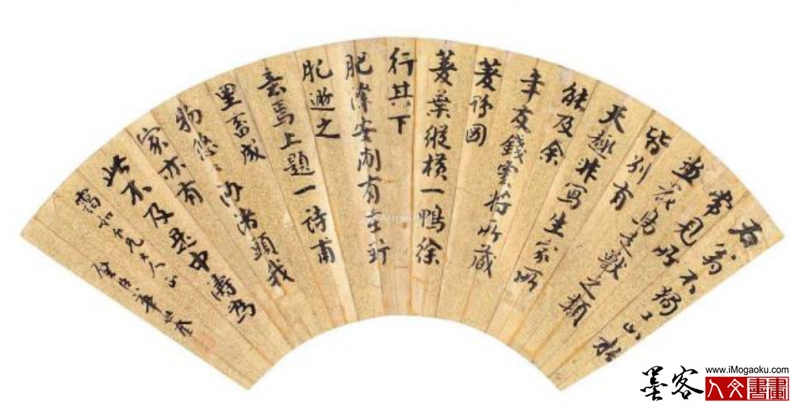 石翁
常見不獨工
畫花鳥走獸之類
皆別有
天趣非寫生家所
能及余
年友錢雲將所藏
菱
菱葉縱橫一鴨徐
行其下
肥澤安閒有在野
肥遯之
意焉上題一詩甫
里畜成
物悠悠 渚頭我
家亦有
此不及是中濤為
墨客
www.iMogaoku.com
人文書畫